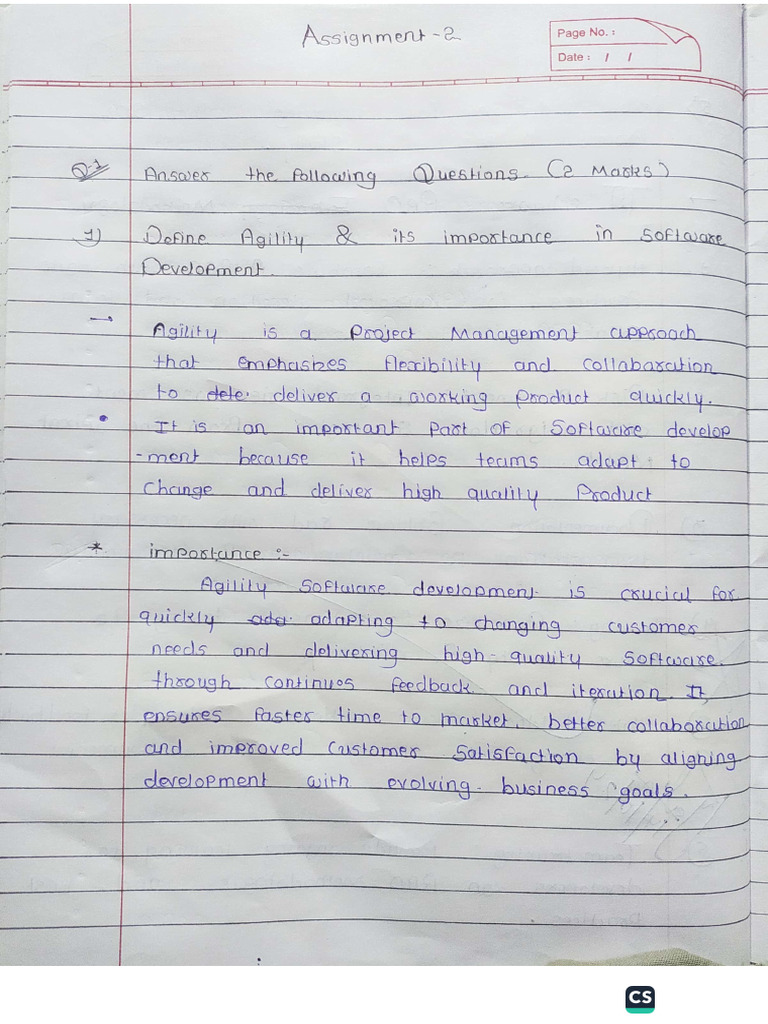 Assignment-2
Page No. :
Date : / /
Q-1 Answer the following Questions. (2 Marks)
1) Define Agility & its importance in Software
Development.
→ Agility is a Project Management approach
that emphasizes flexibility and collabaration
to dele. deliver a working Product quickly.
• It is an important Part of Software develop
-ment because it helps teams adapt to
Change and deliver high quality Product
* importance :-
Agility Software development is crucial for
quickly ada. adapting to changing customer
needs and delivering high-quality Software.
through continues feedback and iteration. It,
ensures faster time to market, better collabaration
and improved Customer Satisfaction by aligning
development with evolving business goals.
CS